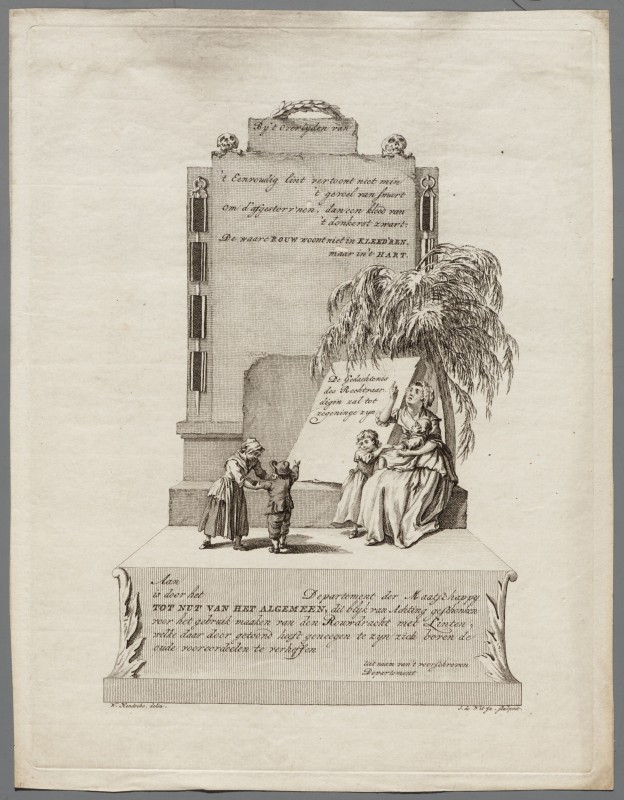 By 't Overlyden van
't Eenvoudig lint vertoont niet min
't gevoel van smart
Om d'afgestorv'nen, dan een kleed van
't donkerst zwart:
De waare ROUW woont niet in KLEED'REN,
maar in 't HART.
De Gedachtenis
des Rechtvaar-
digen zal tot
zegeninge zyn.
Aan
is door het Departement der Maatschappy
TOT NUT VAN HET ALGEMEEN, dit blyk van Achting geschonken
voor het gebruik maaken van den Rouwdracht met Linten;
welke daar door getoond heeft genegen te zyn zich boven de
oude vooroordeelen te verheffen
uit naam van 't voorschreven
Departement
W. Hendriks, delin.
sculpsit.